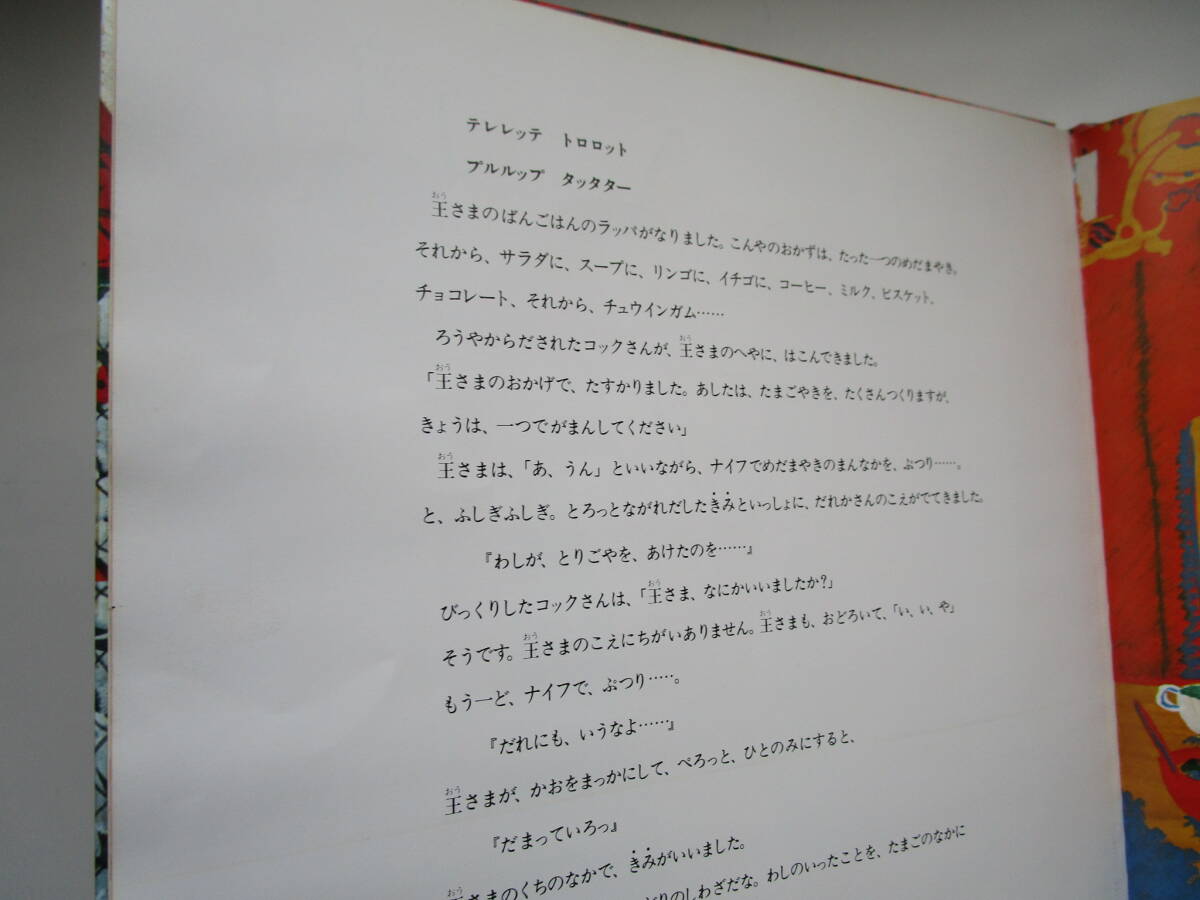 テレレッテ　トロロット
プルルップ　タッタター
王さまのばんごはんのラッパがなりました。こんやのおかずは、たった一つのめだまやき。
それから、サラダに、スープに、リンゴに、イチゴに、コーヒー、ミルク、ビスケット、
チョコレート、それから、チュウインガム……
ろうやからだされたコックさんが、王さまのへやに、はこんできました。
「王さまのおかげで、たすかりました。あしたは、たまごやきを、たくさんつくりますが、
きょうは、一つでがまんしてください」
王さまは、「あ、うん」といいながら、ナイフでめだまやきのまんなかを、ぷつり……。
と、ふしぎふしぎ。とろっとながれだしたきみといっしょに、だれかさんのこえがでてきました。
『わしが、とりごやを、あけたのを……』
びっくりしたコックさんは、「王さま、なにかいいましたか？」
そうです。王さまのこえにちがいありません。王さまも、おどろいて、「い、い、や」
もう一ど、ナイフで、ぷつり……。
『だれにも、いうなよ……』
王さまが、かおをまっかにして、ぺろっと、ひとのみにすると、
『だまっていろっ』
王さまのくちのなかで、きみがいいました。
どりのしわざだな。わしのいったことを、たまごのなかに